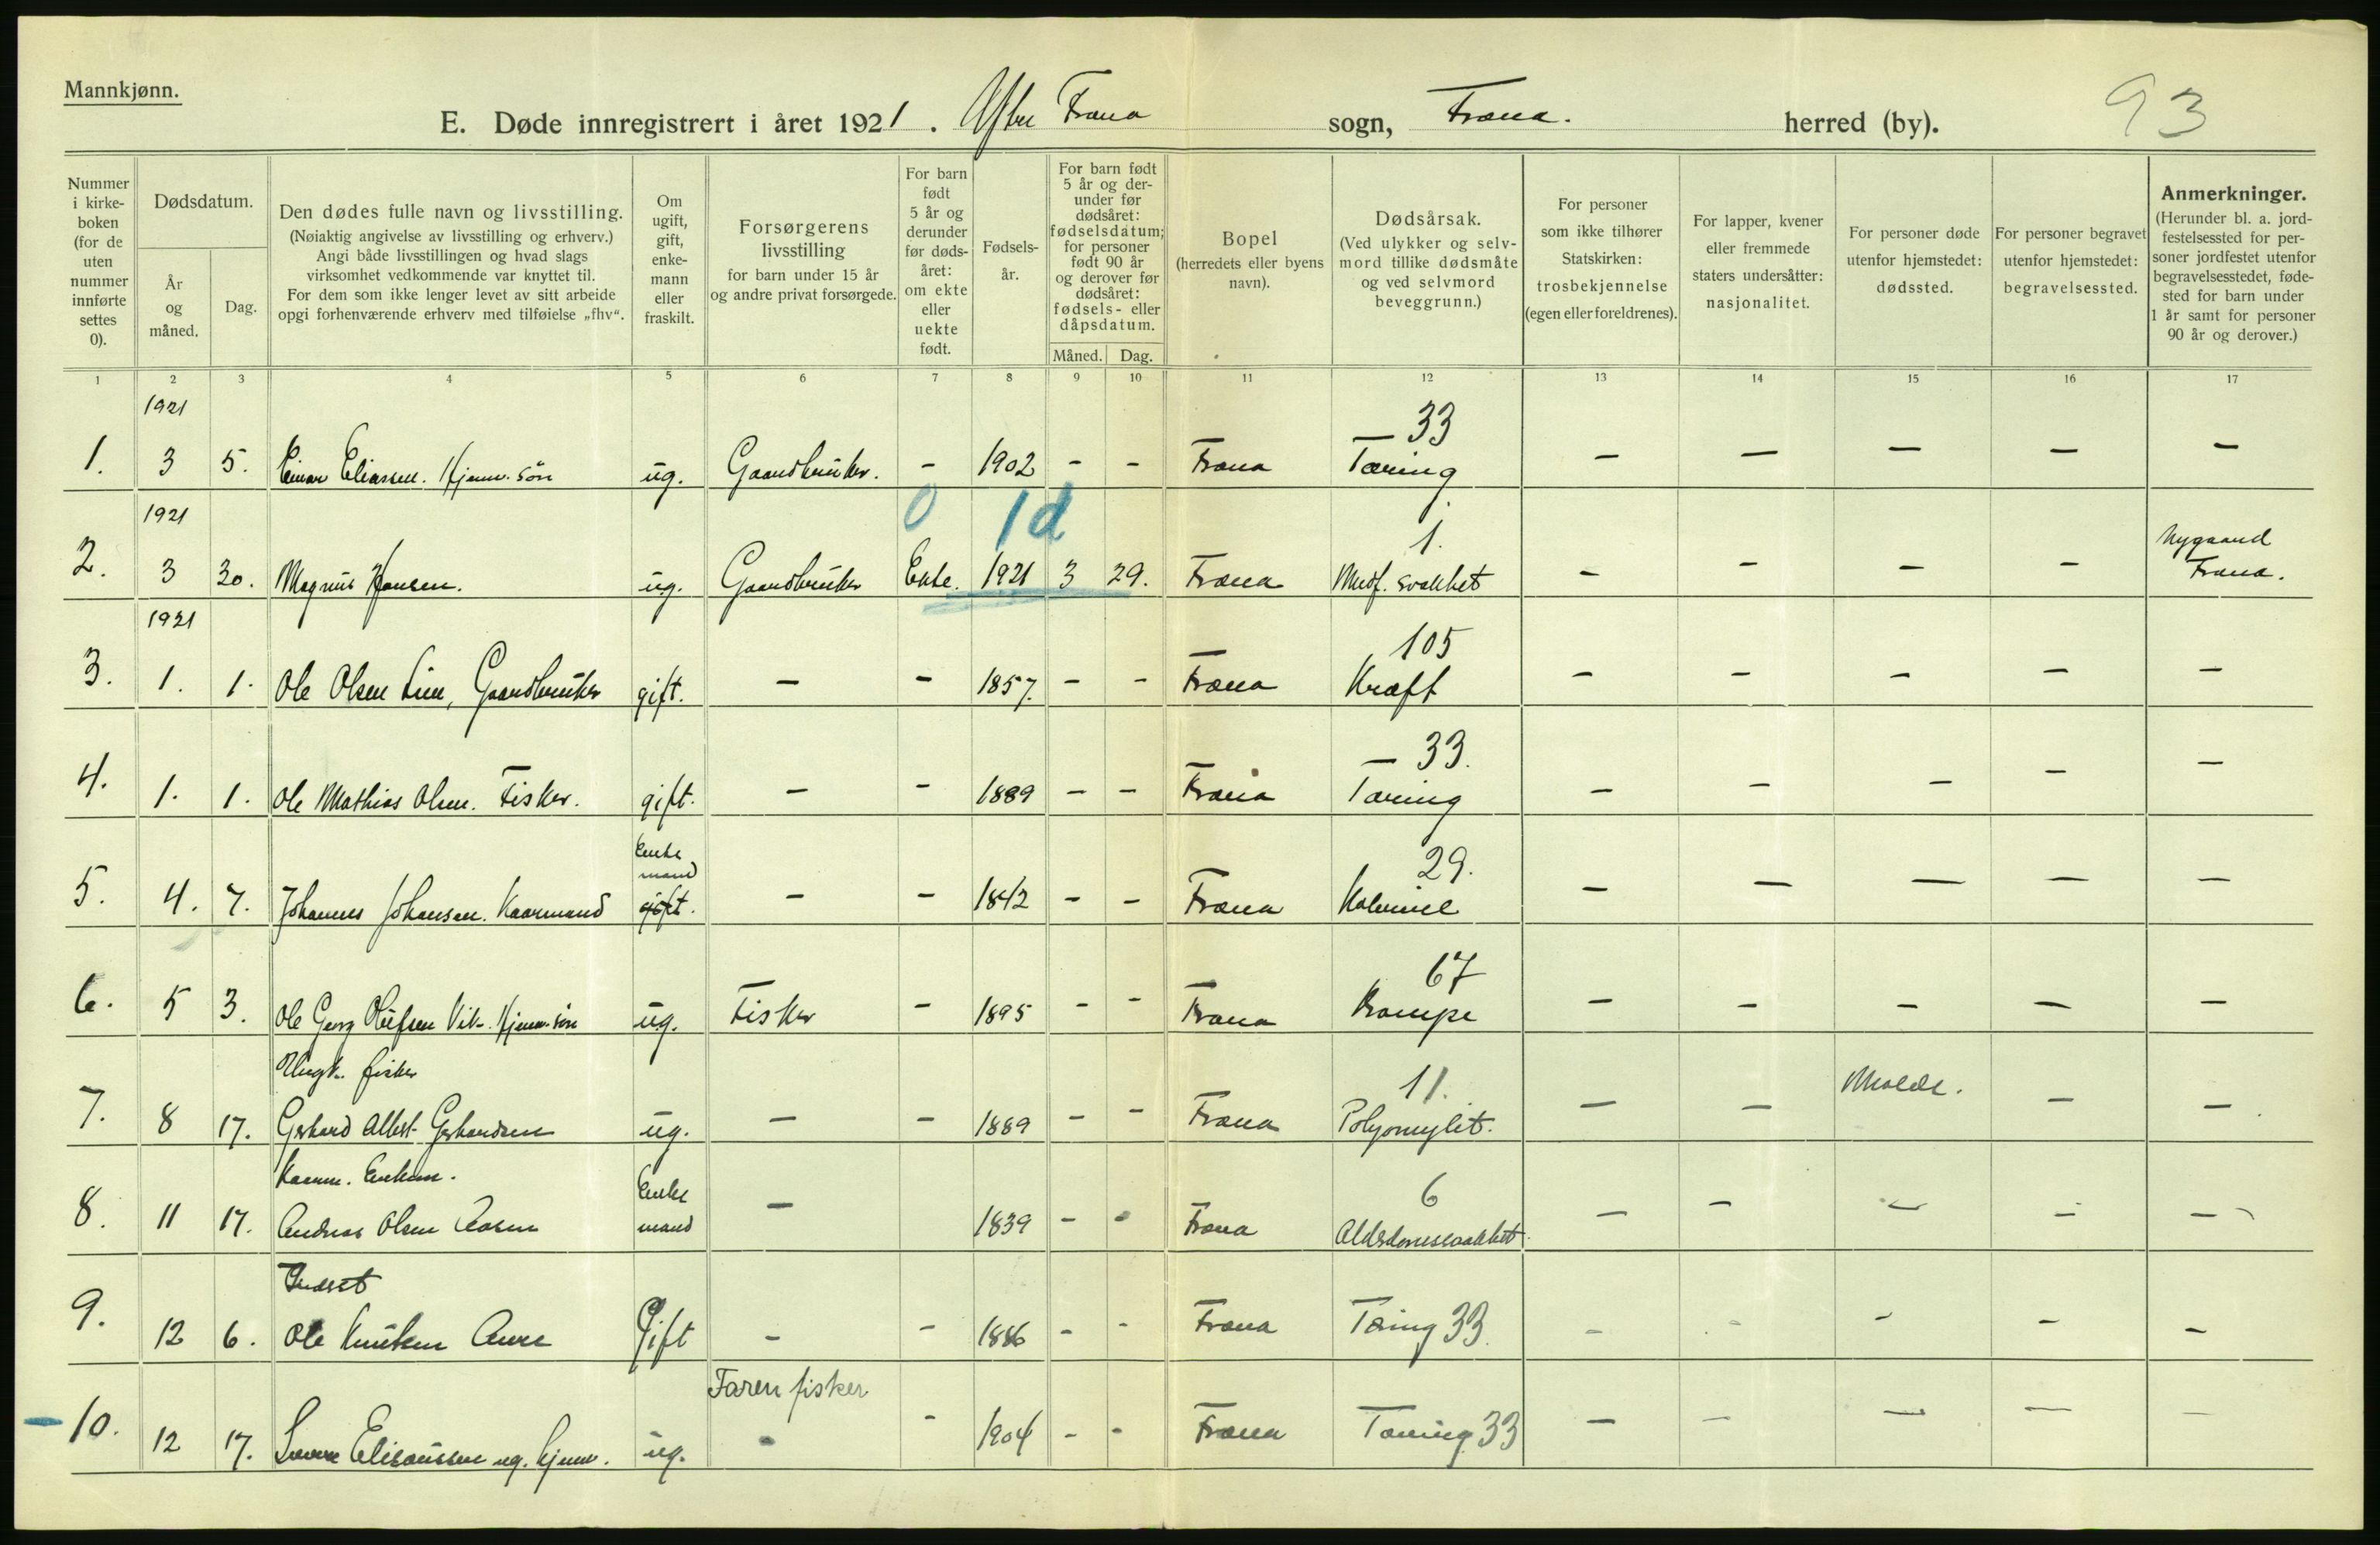 Mannkjønn.
E. Døde innregistrert i året 1921. Ytre Fræna sogn, Fræna. herred (by). 93
Nummer i kirkeboken (for de uten nummer innførte settes 0).
Dødsdatum.
År og måned.
Dag.
Den dødes fulle navn og livsstilling.
(Nøiaktig angivelse av livsstilling og erhverv.)
Angi både livsstillingen og hvad slags
virksomhet vedkommende var knyttet til.
For dem som ikke lenger levet av sitt arbeide
opgi forhenværende erhverv med tilføielse „fhv“.
Om ugift, gift, enkemann eller fraskilt.
Forsørgerens
livsstilling
for barn under 15 år
og andre privat forsørgede.
For barn født 5 år og derunder før dødsåret: om ekte eller uekte født.
Fødselsår.
For barn født 5 år og derunder før dødsåret: fødselsdatum; for personer født 90 år og derover før dødsåret: fødsels- eller dåpsdatum.
Måned. Dag.
Bopel
(herredets eller byens
navn).
Dødsårsak.
(Ved ulykker og selvmord tillike dødsmåte
og ved selvmord
beveggrunn.)
For personer
som ikke tilhører
Statskirken:
trosbekjennelse
(egen eller foreldrenes).
For lapper, kvener
eller fremmede
staters undersåtter:
nasjonalitet.
For personer døde
utenfor hjemstedet:
dødssted.
For personer begravet
utenfor hjemstedet:
begravelsessted.
Anmerkninger.
(Herunder bl. a. jordfestelsessted for personer jordfestet utenfor
begravelsesstedet, fødested for barn under
1 år samt for personer
90 år og derover.)
1 2 3 4 5 6 7 8 9 10 11 12 13 14 15 16 17
1921 33
1. 3 5. Einar Eliassen. Hjemv. søn ug. Gaardbruker. - 1902 - - Fræna Tæring - - - - -
1921 0 1d 1. Nygaard
2. 3 30. Magnus Hansen. ug. Gaardbruker Ekte. 1921 3 29. Fræna Medf. svakhet - - - - Fræna.
1921 105
3. 1. 1. Ole Olsen Lien, Gaardbruker gift. - - 1857. - - Fræna Kræft - - - - -
33.
4. 1. 1. Ole Mathias Olsen. Fisker. gift. - - 1889 - - Fræna Tæring - - - - -
Enke mand 29.
5. 4. 7. Johannes Johansen. Kaarmand gift. - - 1842 - - Fræna - - - - -
67
6. 5 3. Ole Georg Olufsen Vik. Hjemv. søn ug. Fisker - 1895 - - Fræna Krampe - - - - -
Ungk. fisker 11. Molde.
7. 8 17. Gerhard Albert Gerhardsen ug. - - 1889 - - Fræna Polyomylit. - - - -
Kaarm. Enkem. Enke 6
8. 11 17. Andreas Olsen Aasen mand - 1839 - - Fræna Alderdomssvakhet. - - - - -
9. 12 6. Ole Knutsen Aure Gift - - 1886 - - Fræna Tæring 33. - - - - -
Faren fisker
10. 12 17. Elisæussen ug. hjemv. ug. - - 1904 - - Fræna Tæring 33 - - - - -